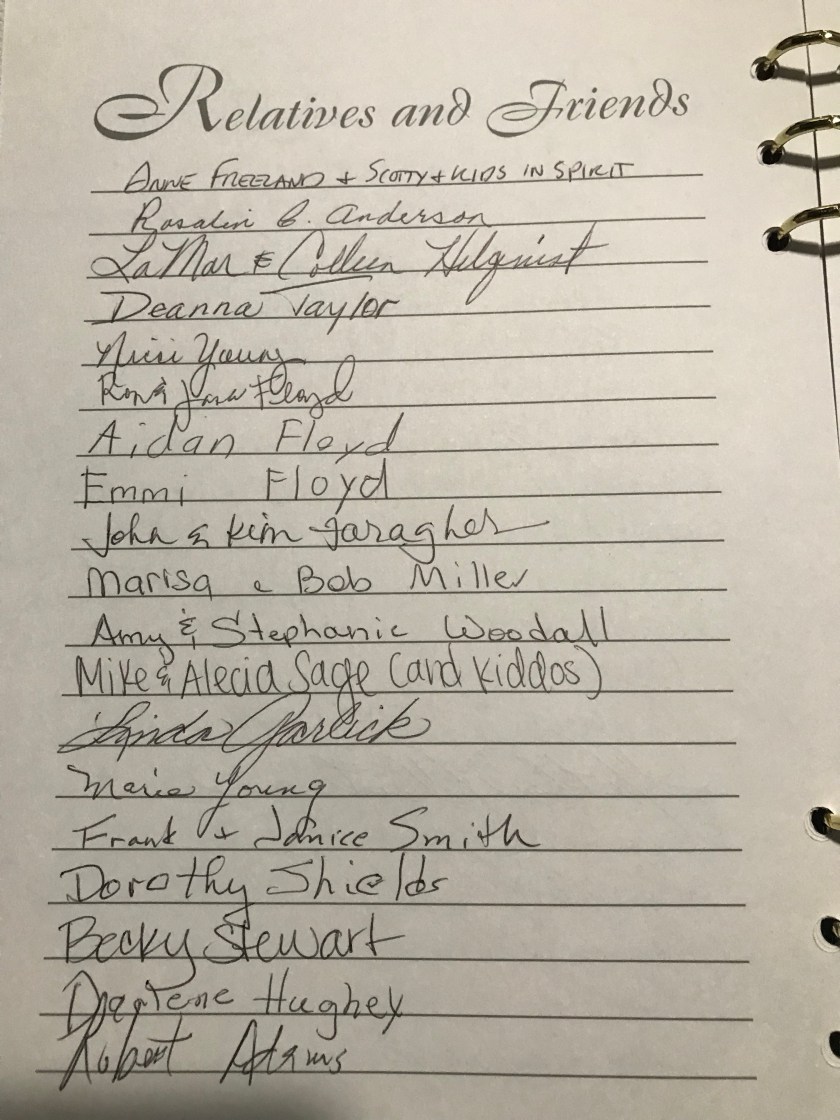 Relatives and Friends
ANNE FREELAND + SCOTTY + KIDS IN SPIRIT
Rosalin B. Anderson
LaMar & Colleen Helquist
Deanna Taylor
Young
Ron & Floyd
Aidan Floyd
Emmi Floyd
John & Kim Faragher
Marisa & Bob Miller
Amy & Stephanie Woodall
Mike & Alecia Sage (and Kiddos)
Linda Garlick
Marie Young
Frank + Janice Smith
Dorothy Shields
Becky Stewart
Darlene Hughey
Robert Adams